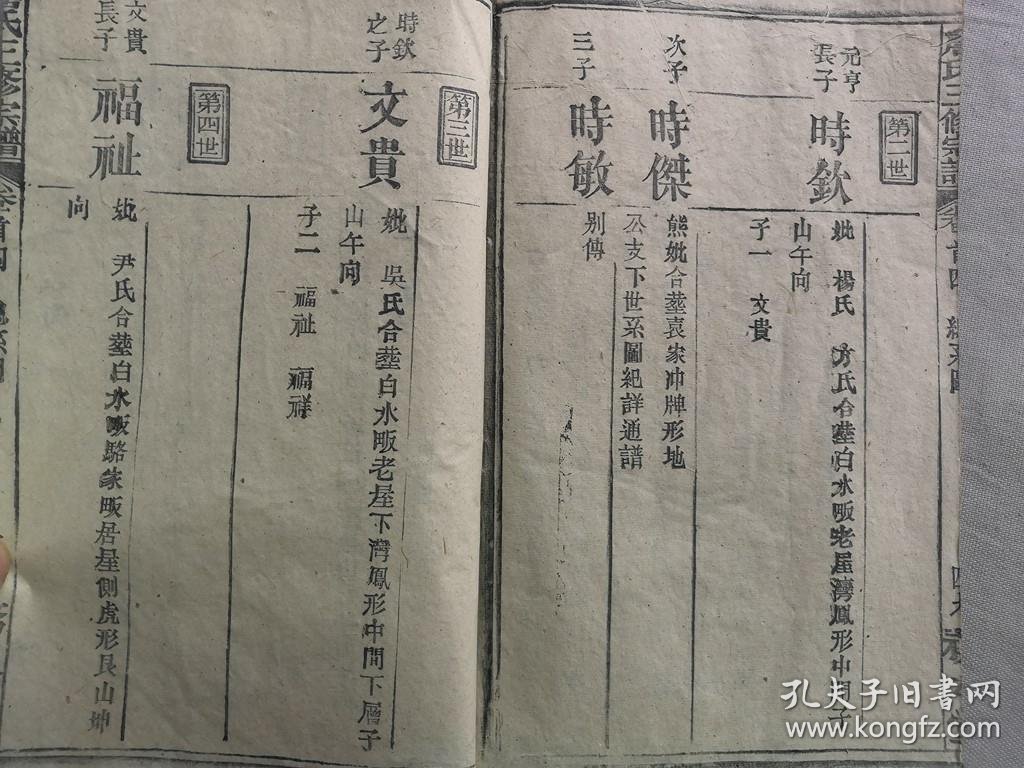 氏三修宗譜
卷首四
第二世
元亨
長子
時欽
妣 楊氏 方氏合塟白水畈老屋灣鳳形中間子
山午向
子一 文貴
次子
時傑
熊妣合塟袁家冲牌形地
公支下世系圖紀詳通譜
三子
時敏
别傳
第三世
時欽
之子
文貴
妣 吳氏合塟白水畈老屋下灣鳳形中間下層子
山午向
子二 福祉 福祥
第四世
文貴
長子
福祉
妣 尹氏合塟白水畈駱家畈居屋側虎形艮山坤
向
氏三修宗譜
卷首四
孔夫子旧書网
www.kongfz.com